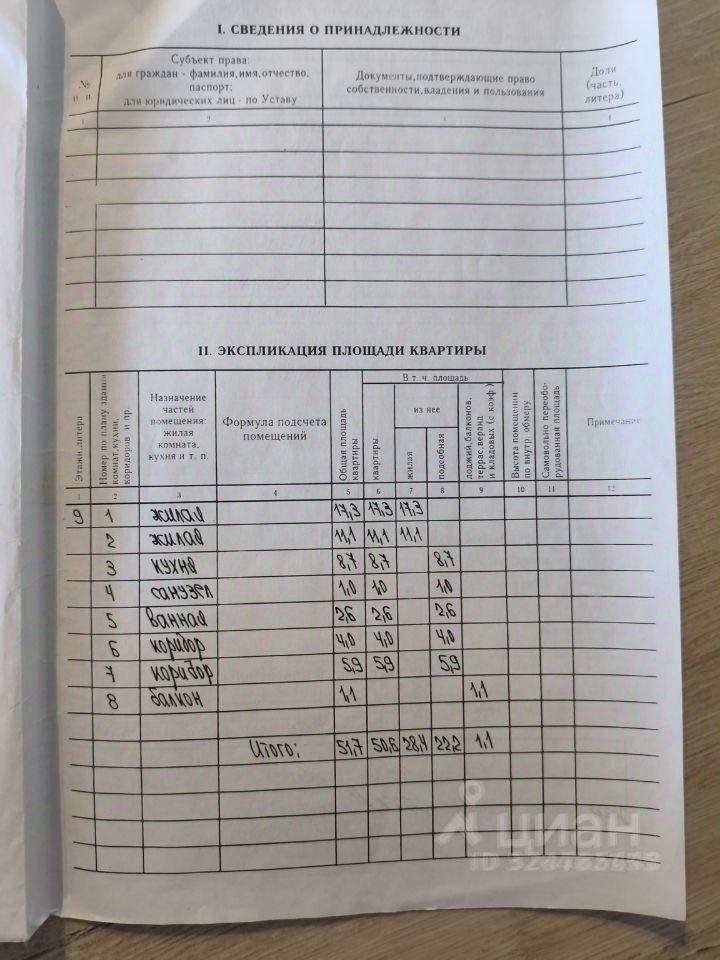 I. СВЕДЕНИЯ О ПРИНАДЛЕЖНОСТИ
№ п п
Субъект права: для граждан - фамилия,имя,отчество, паспорт; для юридических лиц - по Уставу
Документы,подтверждающие право собственности,владения и пользования
Доля (часть, литера)
1 2 3 4
II. ЭКСПЛИКАЦИЯ ПЛОЩАДИ КВАРТИРЫ
Этажи,литера
Номер по плану здания комнат,кухни, коридоров и пр.
Назначение частей помещения: жилая комната, кухня и т. п.
Формула подсчета помещений
Общая площадь квартиры
В т. ч. площадь
квартиры
из нее
жилая
подсобная
лоджий,балконов, террас,веранд и кладовых (с коэф.)
Высота помещении по внутр. обмеру
Самовольно переобо- рудованная площадь
Примечание
1 2 3 4 5 6 7 8 9 10 11 12
9 1 жилая 17,3 17,3 17,3
2 жилая 11,1 11,1 11,1
3 кухня 8,7 8,7 8,7
4 санузел 1,0 1,0 1,0
5 ванная 2,6 2,6 2,6
6 коридор 4,0 4,0 4,0
7 коридор 5,9 5,9 5,9
8 балкон 1,1 1,1
Итого: 51,7 50,6 28,4 22,2 1,1
циан